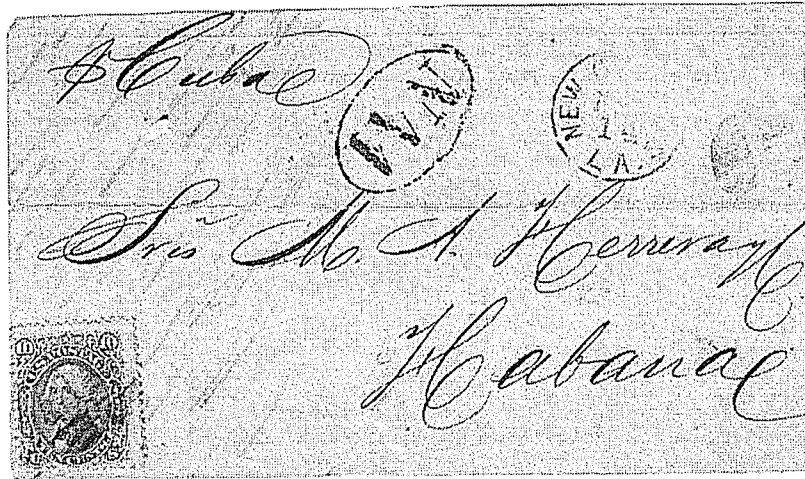 p Cuba
NA1
NEW
LA.
Srˢ M. A. Herrera y C
Habana